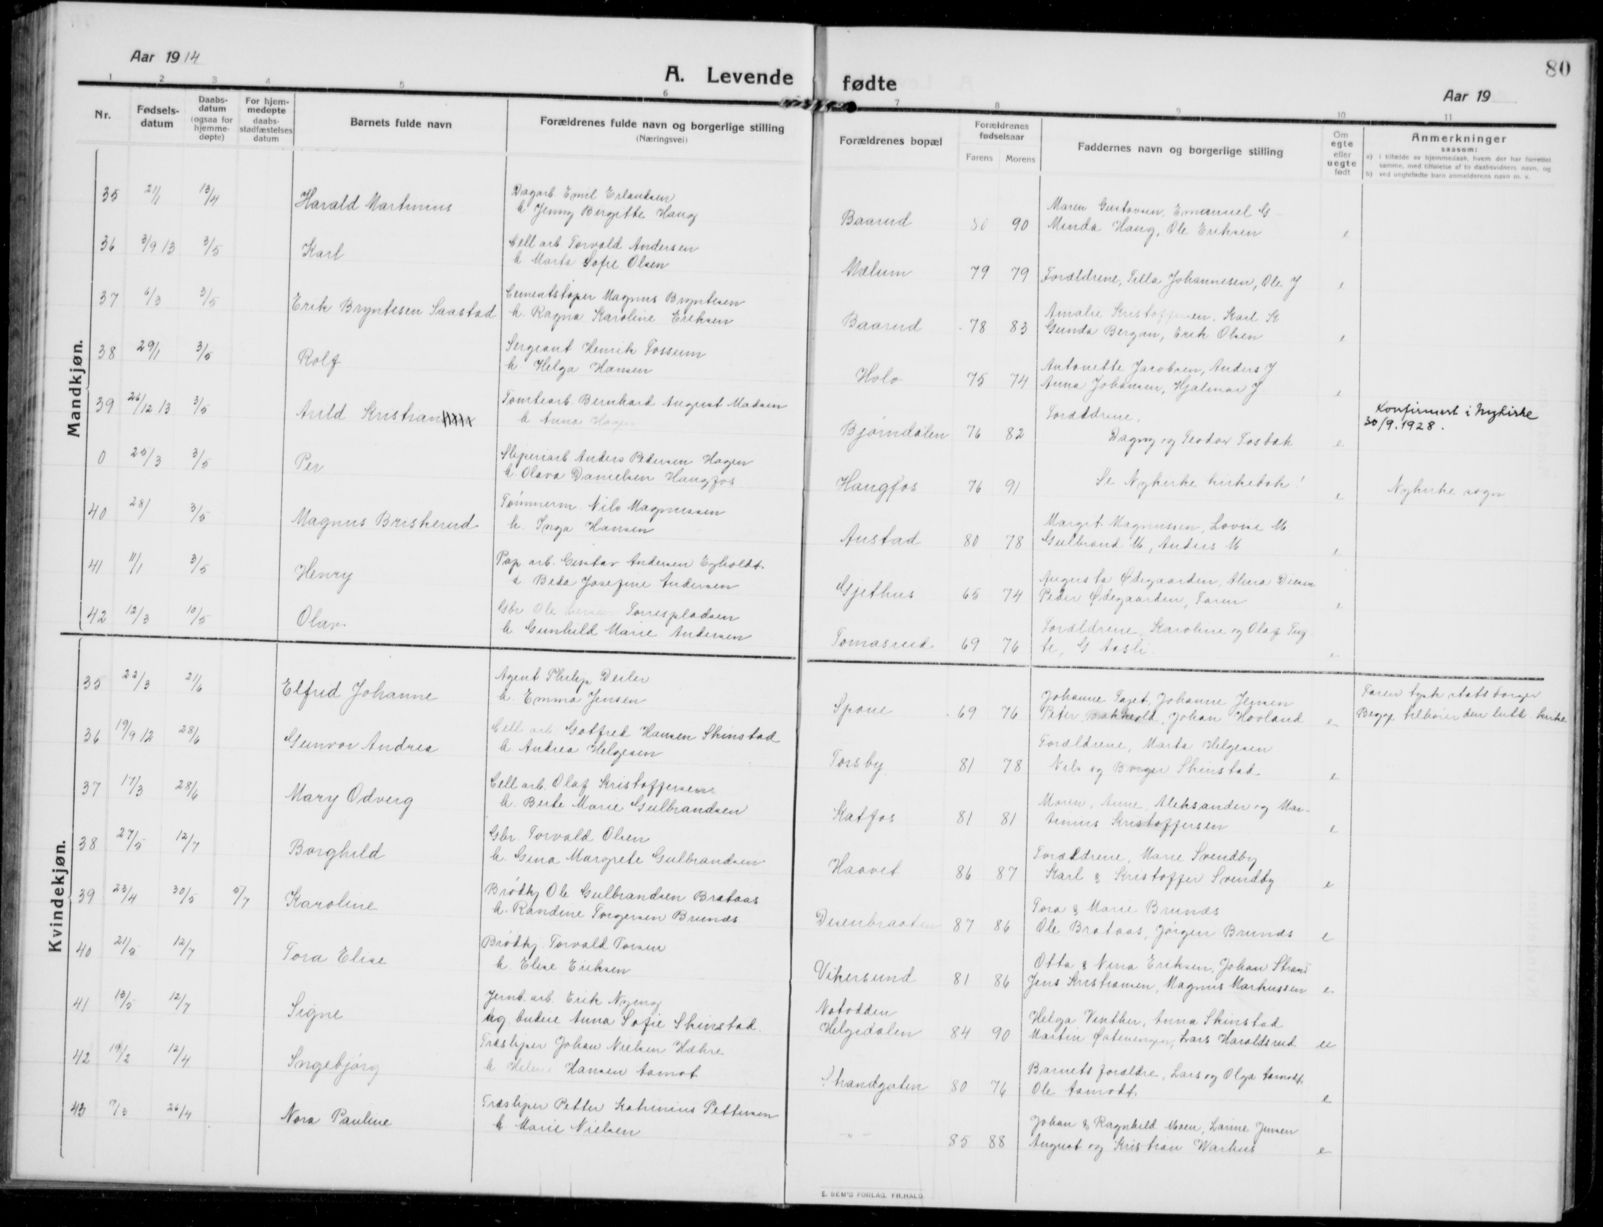 Aar 1914
A. Levende fødte
80
Aar 19
1 2 3 4 5 6 7 8 9 10 11
Nr.
Fødsels-
datum
Daabs-
datum
(ogsaa for
hjemme-
døpte)
For hjem-
medøpte
daabs-
stadfæstelses
datum
Barnets fulde navn
Forældrenes fulde navn og borgerlige stilling
(Næringsvei)
Forældrenes bopæl
Forældrenes
fødselsaar
Farens Morens
Faddernes navn og borgerlige stilling
Om
egte
eller
uegte
født
Anmerkninger
saasom:
a) i tilfælde av hjemmedaab, hvem der har forrettet
samme, med tilføielse af to daabsvidners navn, og
b) ved uegtefødte barn anmelderens navn m. v.
Mandkjøn.
35 21/1 13/4 Harald Martinius
Dagarb. Emil Erlandsen
h Jenny Bergitte Haug
Baarud 80 90
Maren Gustavsen, Emanuel G
Minda Haug, Ole Eriksen e
36 3/9 13 3/5 Karl
Cell arb Torvald Andersen
h Marta Sofie Olsen
Mælum 79 79 Forældrene, Tilla Johannesen, Ole J e
37 6/3 3/5 Erik Bryntesen Saastad
Cementstøper Magnus Bryntesen
h. Ragna Karoline Eriksen
Baarud 78 83
Amalie Kristoffersen, Karl K
Gunda Bergan, Erik Olsen e
38 29/1 3/5 Rolf
Sergeant Henrik Fossum
h Helga Hansen
Hole 75 74
Antonette Jacobsen, Anders J
Anna Johansen, Hjalmar J e
39 26/12 13 3/5 Arild Kristian
Tomtearb Bernhard August Madsen
h Anna
Bjørndalen 76 82
Forældrene,
Dagny og Teodor Fosbak e
Konfirmert i Nykirke
30/9.1928.
0 25/3 3/5 Per
Sliperiarb Anders Pedersen Hagen
h Olava Danielsen Haugfos
Haugfos 76 91 Se Nykirke kirkebok! e
Nykirke sogn
40 28/ 3/5 Magnus Briskerud
Tømmerm. Nils Magnussen
h. Inga Hansen
Austad 80 78
Margit Magnussen, Lovise M
Gulbrand M, Andres M e
41 11/1 3/5 Henry
Pap. arb. Gustav Andersen Egholdt
h Beda Josefine Andersen
Gjethus 65 74
Augusta Ødegaarden, Alma
Peder Ødegaarden, e
42 12/3 10/5 Olav
Gbr Ole Torrespladsen
h Gunhild Marie Andersen
Tomasrud 69 76
Forældrene, Karoline og Olaf
G Aasli e
Kvindekjøn.
35 22/3 21/6 Elfrid Johanne
Agent Philip Deiler
h. Emma Jensen
Spone 69 76
Johanne Johanne Jensen
Peter Johan Hovland e
Faren tysk statsborger
Begge tilhører den luth kirke
36 19/9 12 28/6 Gunvor Andrea
Cell arb Gotfred Hansen Skinstad
h Andrea Helgesen
Torsby 81 78
Forældrene, Marta Helgesen
Nils og Borger Skinstad e
37 17/3 28/6 Mary Odveig
Cell arb. Olaf Kristoffersen
h. Berte Marie Gulbrandsen
Katfos 81 81
Maren, Anne, Aleksander og Mar-
tinius Kristoffersen e
38 27/5 12/7 Borghild
Gbr Torvald Olsen
h Gina Margrete Gulbrandsen
Haavet 86 87
Forældrene, Marie Svendby
Karl & Kristoffer Svendby e
39 23/4 30/5 5/7 Karoline
Brødkj Ole Gulbrandsen Brataas
h. Randine Torgersen Brunæs
Disenbraaten 87 86
Tora & Marie Brunæs
Ole Brataas, Jørgen Brunæs e
40 21/5 12/7 Tora Elise
Brødkj Torvald
h Elise Eriksen
Vikersund 81 86
Otta & Nina Eriksen, Johan Strand
Jens Kristiansen, Magnus Markussen e
41 13/5 12/7 Signe
Jernb. arb. Erik Nyeng
ug. budeie Anna Sofie Skinstad
Notodden
Helgidalen 84 90
Helga Vinther, Anna Skinstad
Martin Lars Haraldsrud ue
42 19/2 12/4 Ingebjørg
Træsliper Johan Nielsen Hæhre
h Helene Hansen Aamot
Strandgaten 80 76
Barnets forældre, Lars og Olga Aamodt
Ole Aamodt e
43 7/3 26/4 Nora Pauline
Træsliper Petter Katrinius Pettersen
h Marie Nielsen
— " — 85 88
Johan & Ragnhild Moen, Larine Jensen
August og Kristian Warhus e
E. SEM'S FORLAG, FR.HALD.